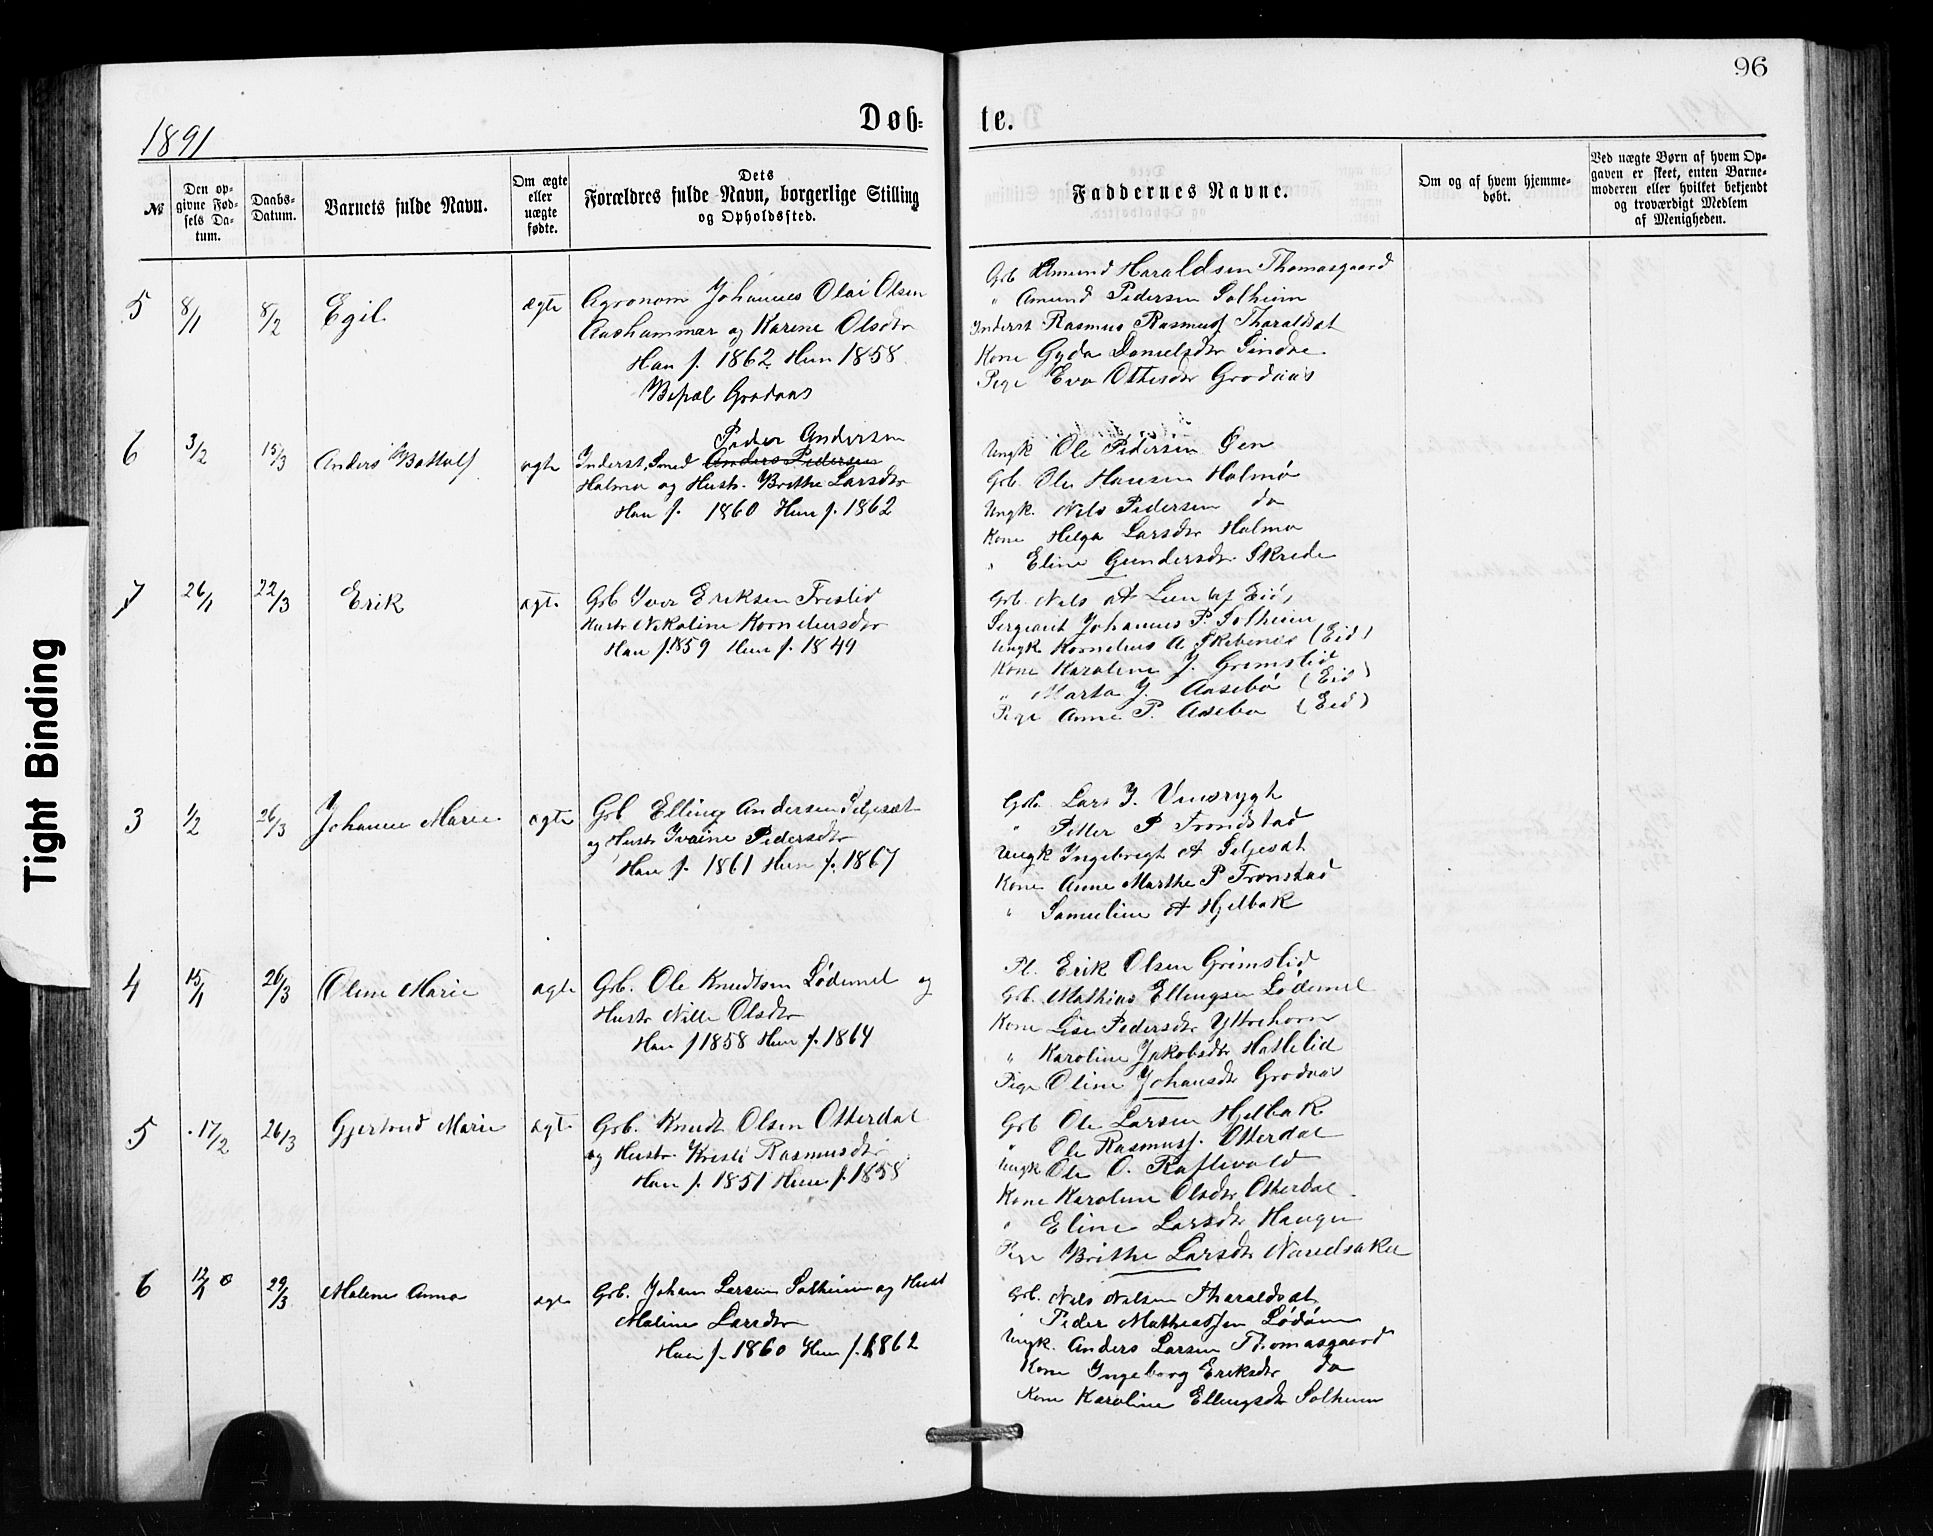 96
1891
Døb=
te.
№
Den op-
givne Fød-
sels Da-
tum.
Daabs-
Datum.
Barnets fulde Navn.
Om ægte
eller
uægte
fødte.
Dets
Forældres fulde Navn, borgerlige Stilling
og Opholdssted.
Faddernes Navne.
Om og af hvem hjemme-
døbt.
Ved uægte Børn af hvem Op-
gaven er skeet, enten Barne-
moderen eller hvilket bekjendt
og troværdigt Medlem
af Menigheden.
5 8/1 8/2 Egil ægte
Agronom Johannes Olai Olsen
Aashammar og Karine Olsdtr
Han f. 1862 Hun 1858
Bopæl Grodaas
Grb Amund Haraldsen Thomasgaard
" Amund Pedersen Solheim
Inderst Rasmus Rasmusf Tharaldsat
Kone Gyda Danielsdtr Sindre
Pige Eva Ottesdtr Grodaas
6 3/2 15/3 Anders Bottolf ægte
Peder Andersen
Inderst, Smed Anders Pedersen
Holmø og Hustr. Brithe Larsdtr
Han f. 1860 Hun f. 1862
Ungk Ole Pedersen Øen
Grb. Ole Hansen Holmø
Ungk. Nils Pedersen do
Kone Helga Larsdtr Holmø
" Eline Gundersdtr Skrede
7 26/1 22/3 Erik ægte
Grb Iver Eriksen Freslid
Hustr Nikoline Korneliusdtr
Han f. 1859 Hun f. 1849
Grb. Nils A Lien (af Eid)
Sergeant Johannes P. Solheim
Ungk Kornelius A Skibenes (Eid)
Kone Karoline J. Grimslid
" Marta J. Aasebø (Eid)
Pige Anne P. Aasebø (Eid)
3 1/2 26/3 Johanne Marie ægte
Grb Elling Andersen Seljesæt
og Hustr Ivaine Pedersdtr
Han f. 1861 Hun f. 1867
Grb. Lars J.
" Petter P Trondstad
Ungk Ingebrigt A Seljesæt
Kone Anne Marthe P Tronstad
" Samueline A Hjelbak
4 15/1 26/3 Oline Marie ægte
Grb. Ole Knudtsen Lødemel og
Hustr Nille Olsdtr
Han f 1858 Hun f. 1864
Pl. Erik Olsen Grimslid
Grb. Mathias Ellingsen Lødemel
Kone Lise Pedersdtr Yttrehorn
" Karoline Jakobsdtr Haslelid
Pige Oline Johansdtr Grodaas
5 17/2 26/3 Gjertrud Marie ægte
Grb. Knudt Olsen Otterdal
og Hustr. Kristi Rasmusdtr
Han f. 1851 Hun f. 1858
Grb Ole Larsen Hjelbak
" Ole Rasmusf. Otterdal
Ungk Ole O. Raftevold
Kone Karoline Olsdtr Otterdal
" Eline Larsdtr Haugen
Pige Brithe Larsdtr
6 29/3 Malene Anna ægte
Grb. Johan Larsen Solheim og Hust
Maline Larsdtr
Han f. 1860 Hun f. 1862
Grb. Nils Nilsen Tharaldsat
" Peder Mathiassen Lødøen
Ungk. Anders Larsen Thomasgaard
Kone Ingeborg Eriksdtr do
Kone Karoline Ellingsdtr Solheim
Tight Binding